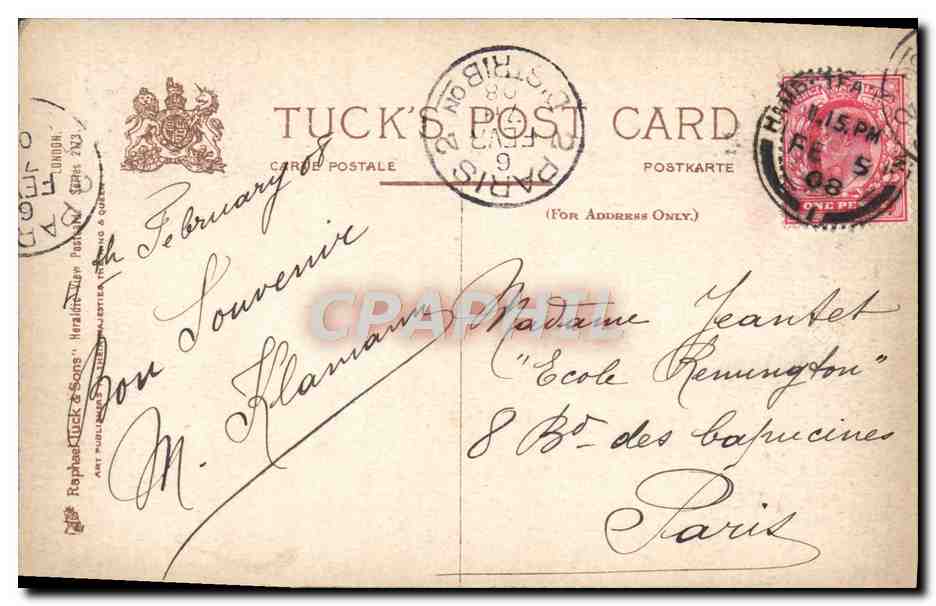 TUCK'S POST CARD
CARTE POSTALE
POSTKARTE
(FOR ADDRESS ONLY.)
PARIS 2
DISTRIBON
6
FEV
08
1.15.PM
FE 5
08
1
ONE PENNY
Raphael Tuck & Sons" Heraldic View Postcard Series 2173
LONDON.
ART PUBLISHERS TO THEIR MAJESTIES THE KING & QUEEN
February 8
bon Souvenir
M. Klamann
Madame Jeantet
"Ecole Remington"
8 Bd des Capucines
Paris
CPAPHIL